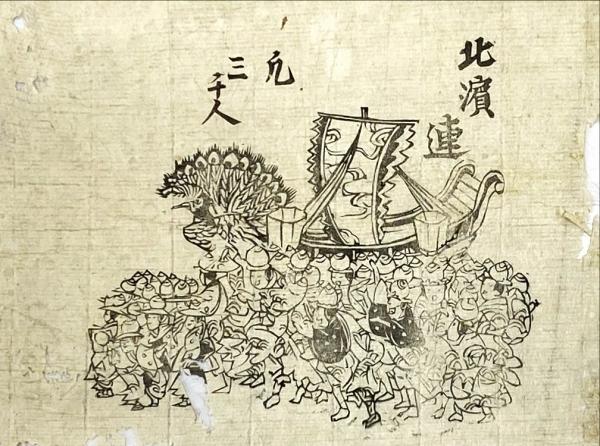 北濱連
凢
三千人